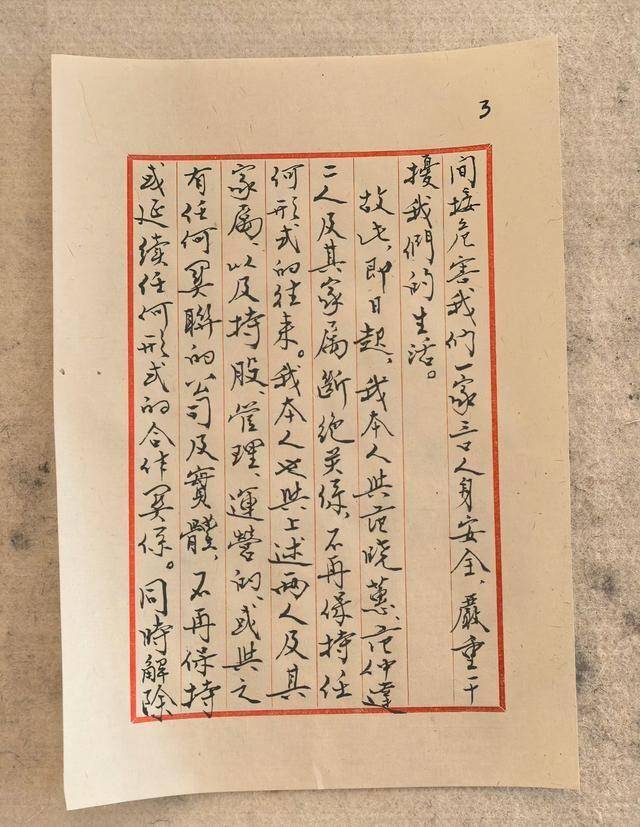 3
间接危害我们一家三口人身安全、嚴重干
擾我們的生活。
故此、即日起、我本人与范晓蕙、范仲達
二人及其家属断绝关係、不再保持任
何形式的往来。我本人也與上述两人及其
家属、以及持股、管理、運营的、或與之
有任何関聯的公司及實體、不再保持
或延續任何形式的合作関係。同時解除